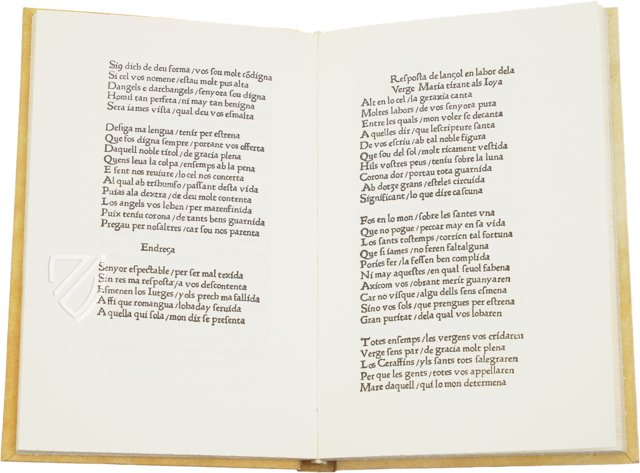 Sig dich de deu forma / vos sou molt cõdigna
Si cel vos nomene / estau molt pus alta
Dangels e darchangels / senyora sou digna
Homil tan perfeta / ni may tan benigna
Sera iames vista / qual deu vos esmalta
Desiga ma lengua / tenir per estrena
Que fos digna sempre / portant vos offerta
Daquell noble titol / de gracia plena
Quens leua la colpa / ensemps ab la pena
E fent nos reuiure / lo cel nos concerta
Al qual ab triumfo / passant desta vida
Puias ala dextra / de deu molt contenta
Los angels vos lohen / per marenfinida
Puix teniu corona / de tants bens guarnida
Pregau per nosaltres / car sou nos parenta
Endreça
Senyor espectable / per ser mal texida
Sin res ma resposta / a vos descontenta
Esmenen los Iutges / yls prech ma fallida
Affi que romangua / lobaday seruida
A quella qui sola / mon dir se presenta
Resposta de lançol en labor dela
Verge Maria tirant als Ioya
Alt en lo cel / la geraxia canta
Moltes labors / de vos senyora pura
Entre les quals / mon voler se decanta
A quelles dir / que lescripture santa
De vos estriu / ab tal noble figura
Que sou del sol / molt ricament vestida
Hils vostres peus / teniu sobre la luna
Corona dor / portau tota guarnida
Ab dotze grans / esteles circuida
Significant / lo que dire cascuna
Fos en lo mon / sobre les santes vna
Que no pogue / peccar may en sa vida
Los sants tostemps / corrien tal fortuna
Que si iames / no feren faltalguna
Pories fer / la fessen ben complida
Ni may aquestes / en qual seuol fahena
Axicom vos / obrant merir guanyaren
Car no visque / algu dells sens esmena
Sino vos sols / que prengues per estrena
Gran puritat / dela qual vos lobaren
Totes ensemps / les vergens vos cridaren
Verge sens par / de gracia molt plena
Los Ceraffins / yls sants tots salegraren
Per que les gents / totes vos appellaren
Mare daquell / qui lo mon determena